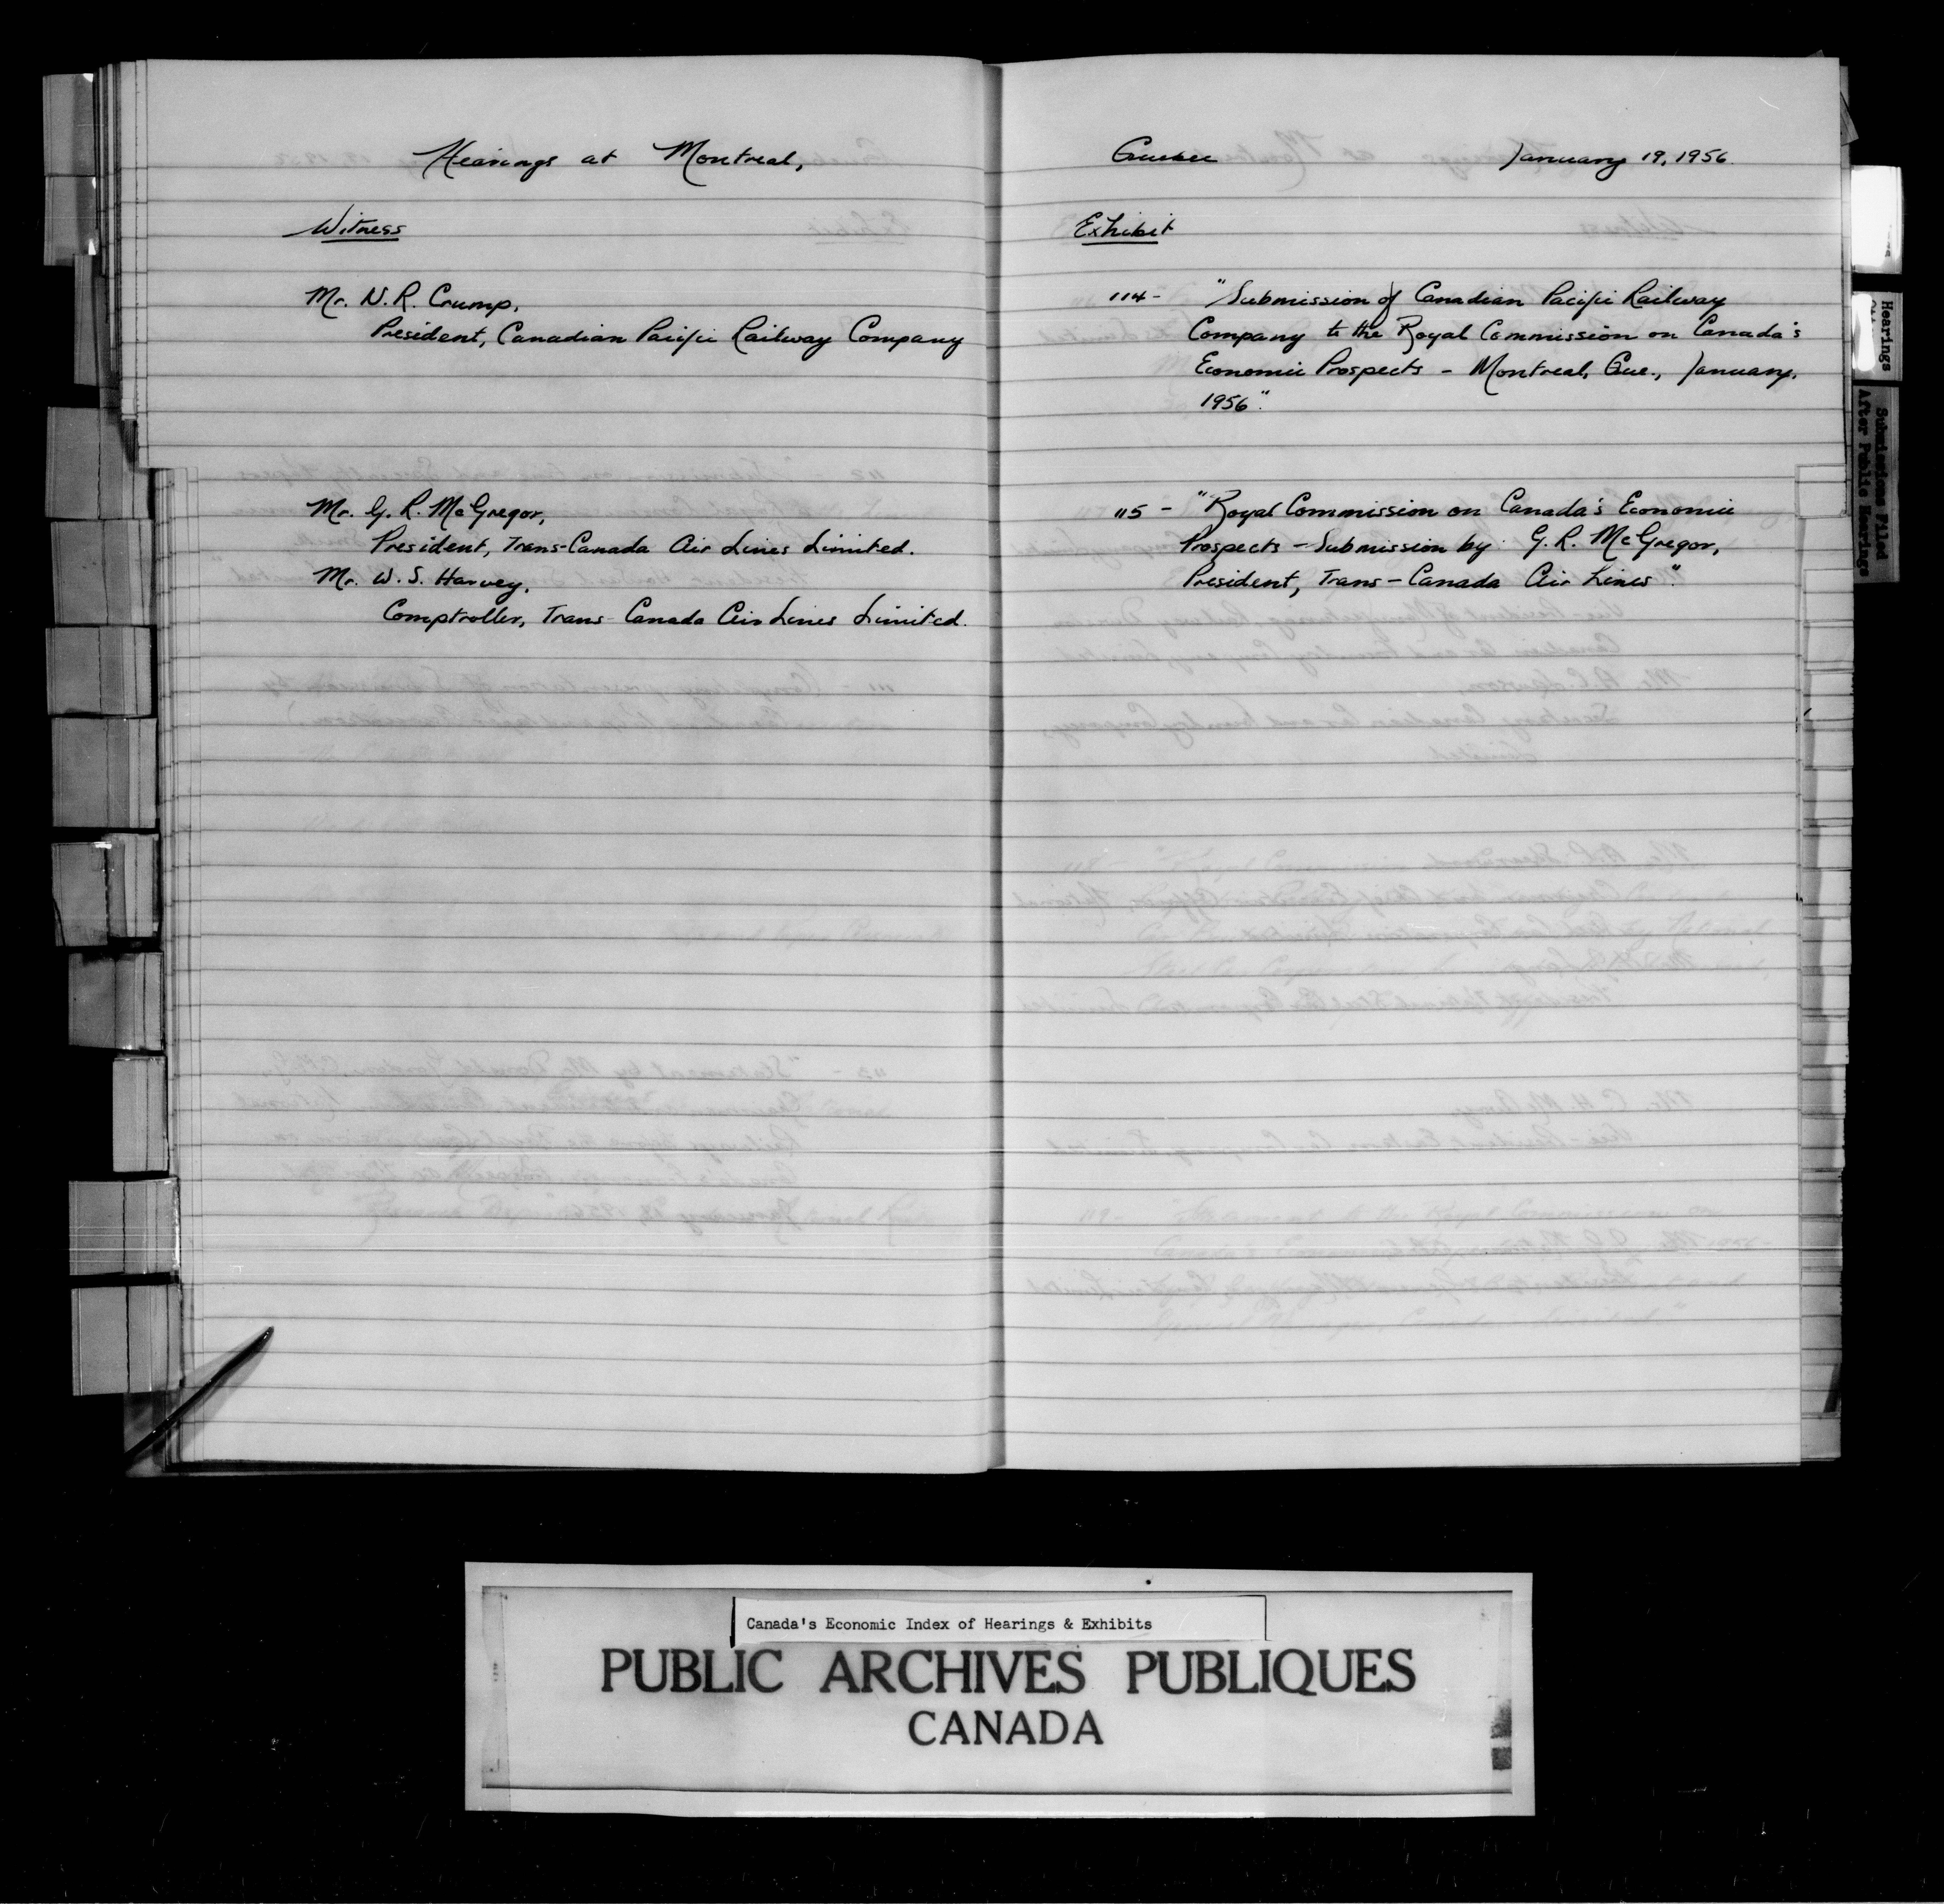 Hearings at Montreal,
Witness
Mr. N. R. Crump,
President, Canadian Pacific Railway Company
Mr. G. R. McGregor,
President, Trans-Canada Air Lines Limited.
Mr. W. S. Harvey,
Comptroller, Trans-Canada Air Lines Limited.
Quebec January 19, 1956.
Exhibit
114 - "Submission of Canadian Pacific Railway
Company to the Royal Commission on Canada's
Economic Prospects - Montreal, Que., January,
1956".
115 - "Royal Commission on Canada's Economic
Prospects - Submission by G. R. McGregor,
President, Trans-Canada Air Lines".
Hearings
Submissions Filed
After Public Hearings
Canada's Economic Index of Hearings & Exhibits
PUBLIC ARCHIVES PUBLIQUES
CANADA